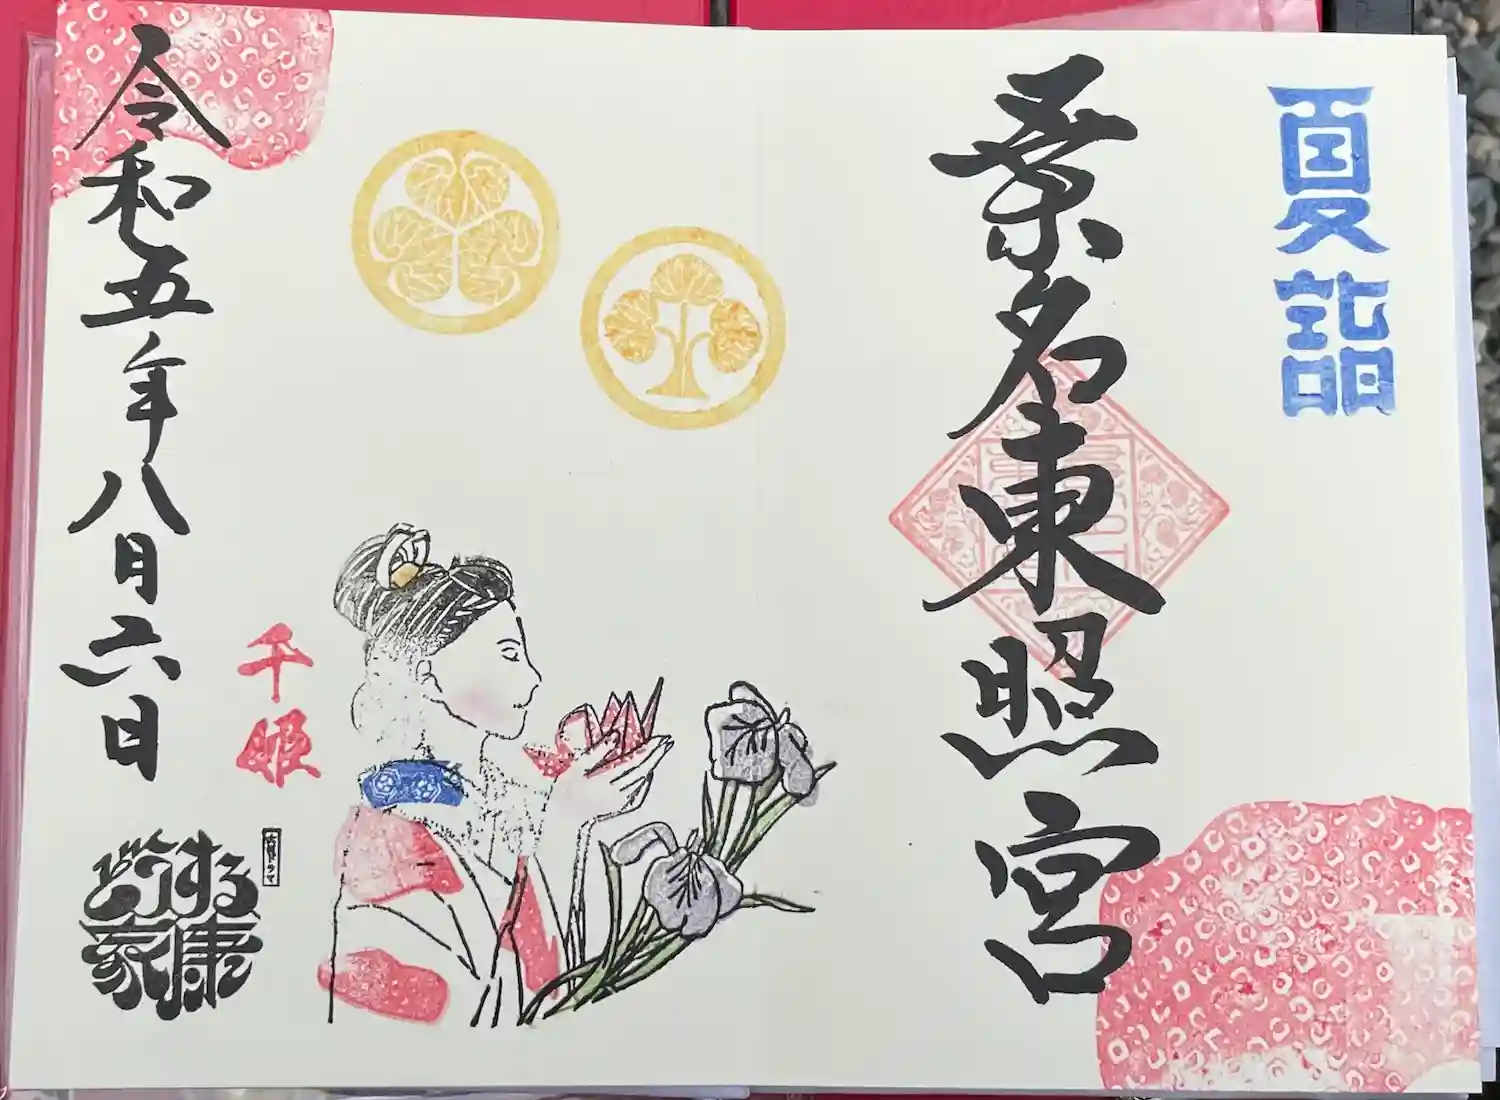 夏詣
桑名東照宮
千姫
令和五年八月六日
大河ドラマ
どうする
家康